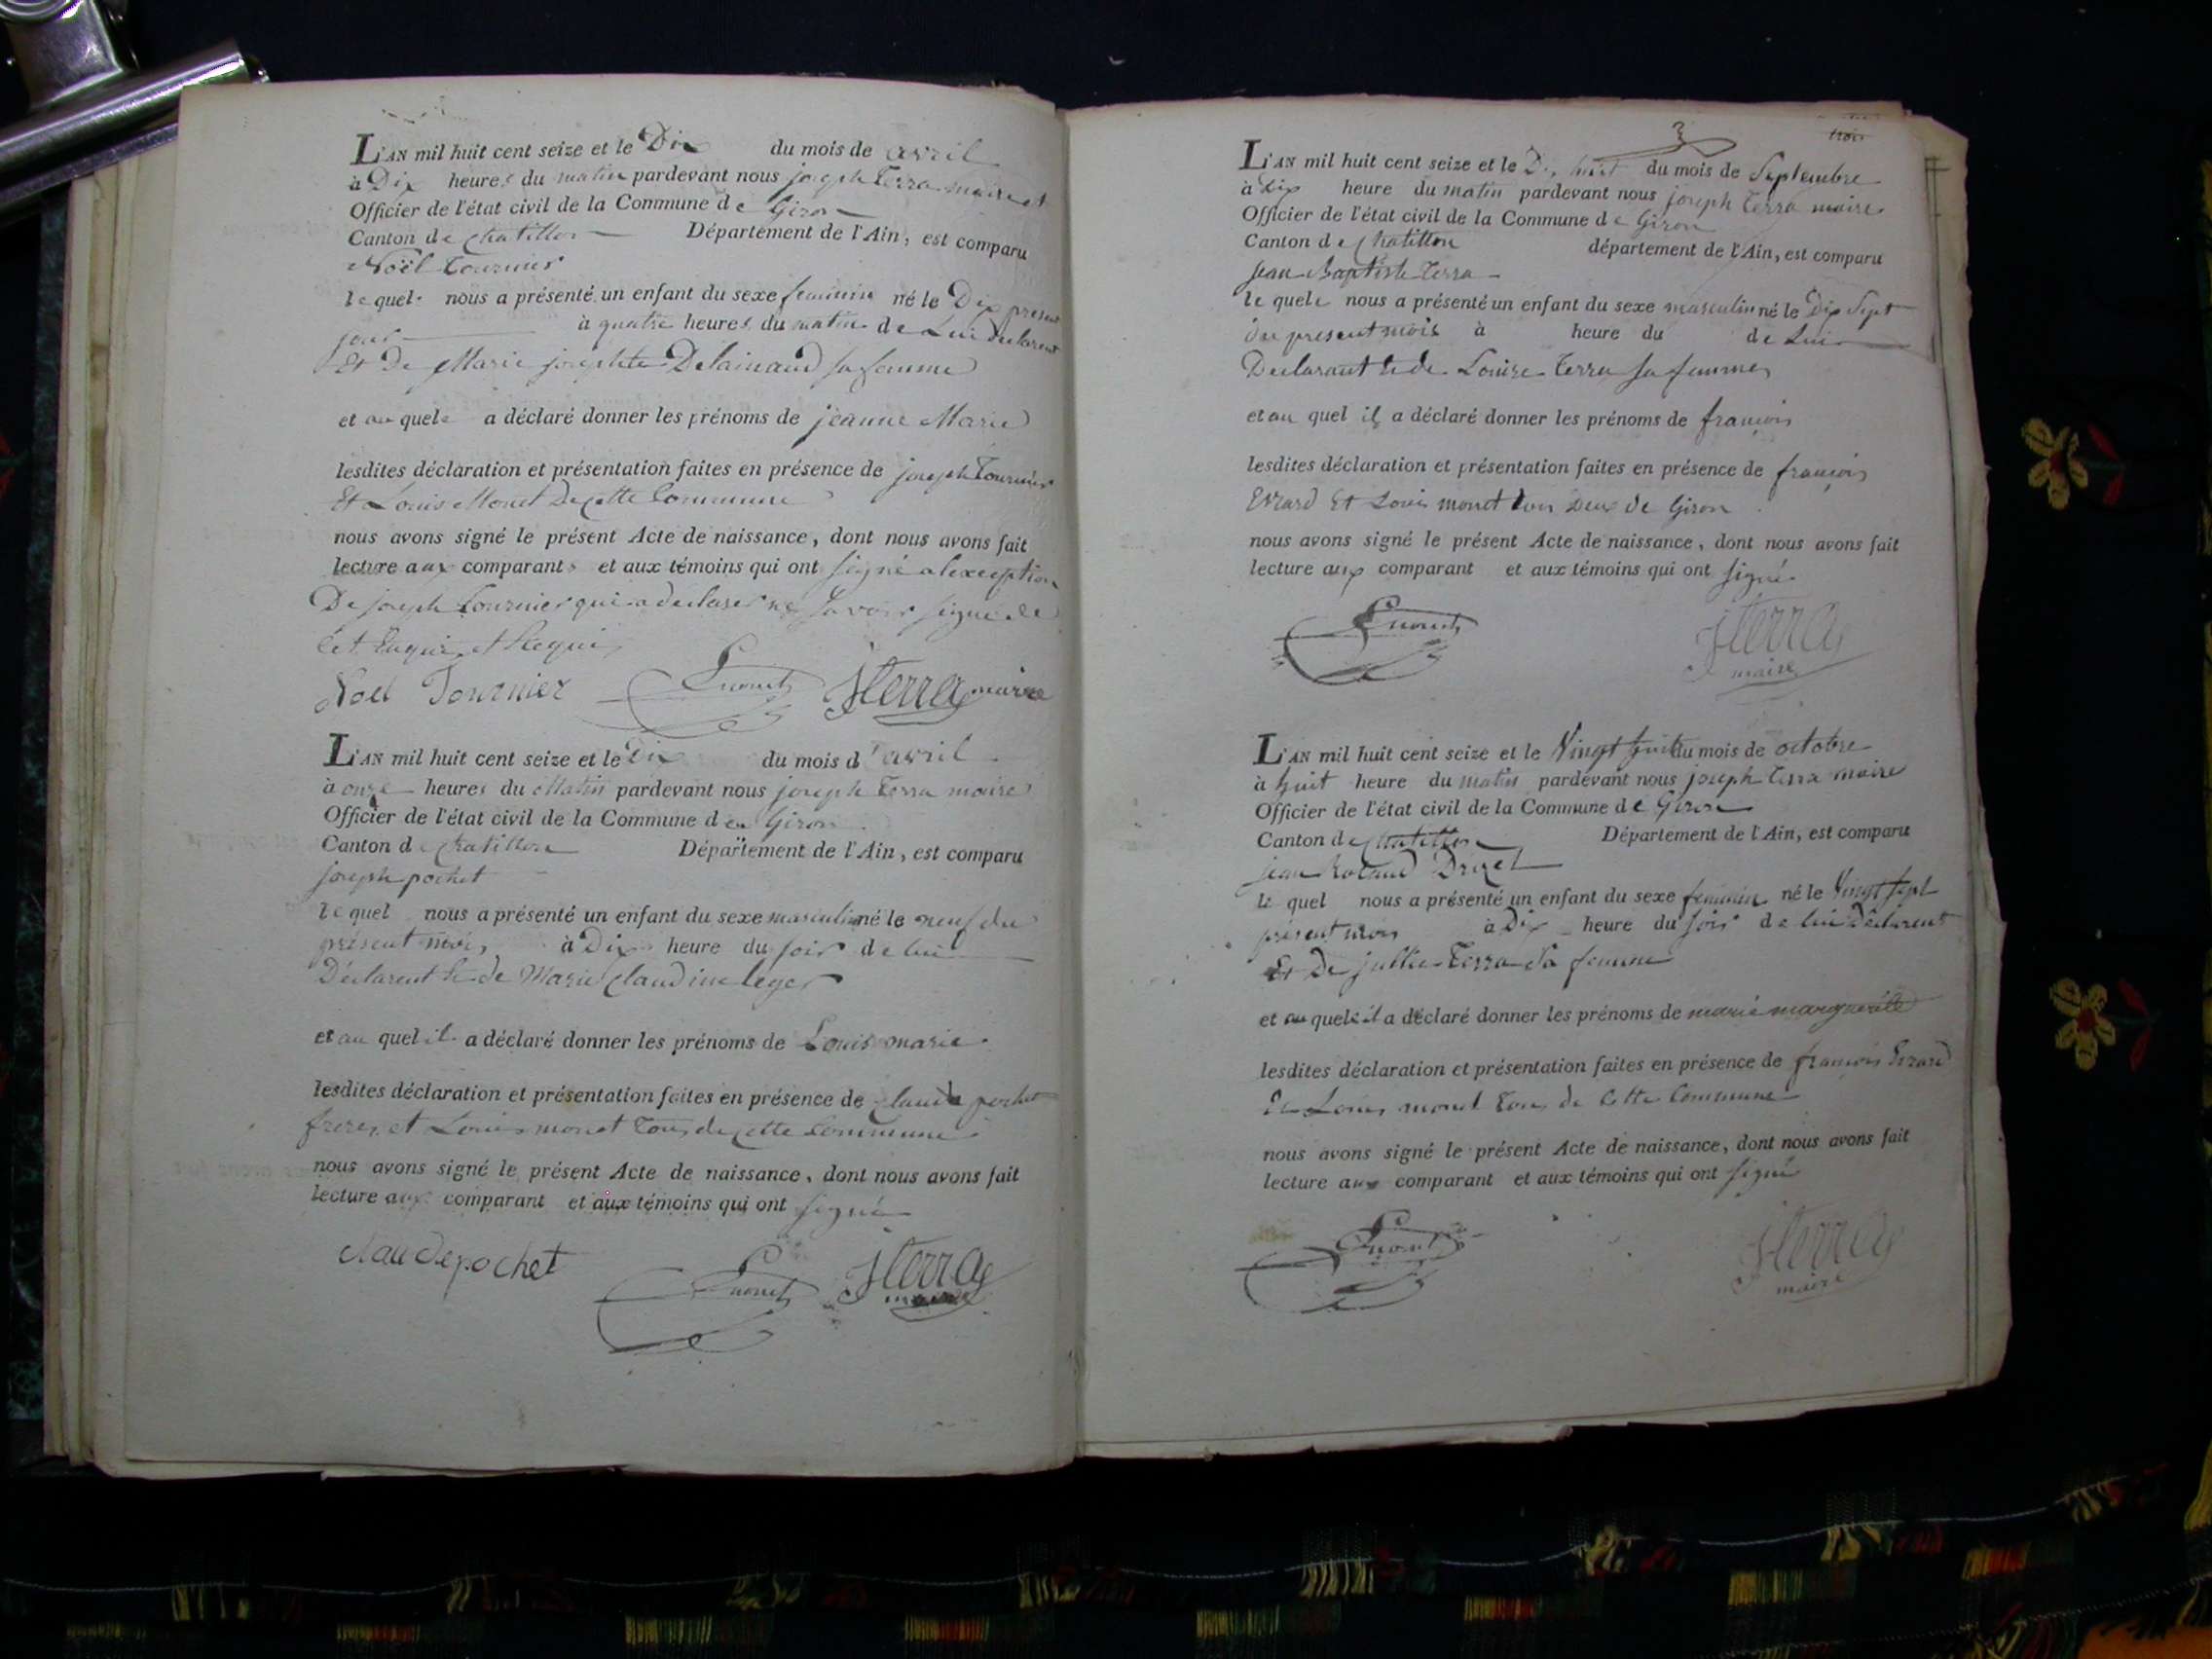 L'AN mil huit cent seize et le Dix du mois de avril
à Dix heures du matin pardevant nous joseph Terra maire et
Officier de l'état civil de la Commune de Giron
Canton de chatillon Département de l'Ain, est comparu
Noël Tournier
lequel nous a présenté un enfant du sexe feminin né le Dix present
jour à quatre heures du matin de Lui declarent
Et De Marie josephte Delainaud sa femme
et au quel a déclaré donner les prénoms de jeanne Marie
lesdites déclaration et présentation faites en présence de joseph Tournier
Et Louis Monet De cette Commune
nous avons signé le présent Acte de naissance, dont nous avons fait
lecture aux comparants et aux témoins qui ont signé a lexception
De joseph Tournier qui a declarer ne savoir signé de
Noel Tournier Lmonet JTerra maire
L'AN mil huit cent seize et le Dix du mois d'avril
à onze heures du Matin pardevant nous joseph Terra maire
Officier de l'état civil de la Commune de Giron
Canton de chatillon Département de l'Ain, est comparu
joseph pochet
lequel nous a présenté un enfant du sexe masculin né le neuf du
présent mois à Dix heure du soir de lui
Déclarent & de Marie Claudine leger
et au quel il a déclaré donner les prénoms de Louis marie
lesdites déclaration et présentation faites en présence de claude pochet
freres et Louis monet Tous de cette Commune
nous avons signé le présent Acte de naissance, dont nous avons fait
lecture aux comparant et aux témoins qui ont signé
claudepochet Lmonet JTerra
maire
3
trois
L'AN mil huit cent seize et le Dix huit du mois de Septembre
à Dix heure du matin pardevant nous joseph Terra maire
Officier de l'état civil de la Commune de Giron
Canton de Chatillon département de l'Ain, est comparu
jean Baptiste Terra
le quele nous a présenté un enfant du sexe masculin né le Dix Sept
du present mois à heure du de Lui
Declarant & de Louise Terra sa femme
et au quel il a déclaré donner les prénoms de françois
lesdites déclaration et présentation faites en présence de françois
Evrard Et Louis monet tous deux de Giron
nous avons signé le présent Acte de naissance, dont nous avons fait
lecture aux comparant et aux témoins qui ont signé
Lmonet JTerra
maire
L'AN mil huit cent seize et le Vingt huit du mois de octobre
à huit heure du matin pardevant nous joseph Terra maire
Officier de l'état civil de la Commune de Giron
Canton de chatillon Département de l'Ain, est comparu
jean Roland Drizet
le quel nous a présenté un enfant du sexe feminin né le Vingt sept
présent mois à Dix heure du soir de lui déclarent
Et De jullie Terra Sa femme
et au quele il a déclaré donner les prénoms de marie marguerite
lesdites déclaration et présentation faites en présence de françois Evrard
Et Louis monet Tous de Cette Commune
nous avons signé le présent Acte de naissance, dont nous avons fait
lecture aux comparant et aux témoins qui ont signé
Lmonet JTerra
maire